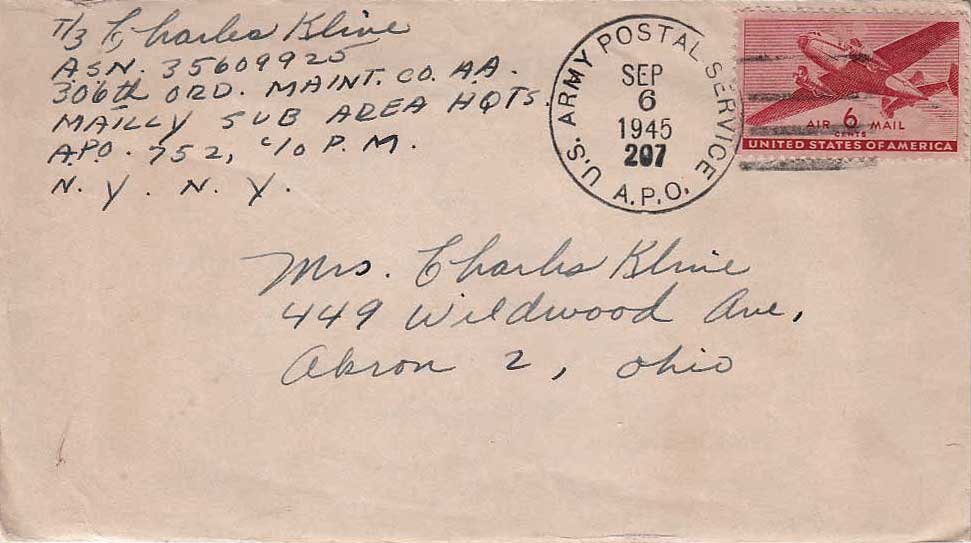 T/3 Charles Kline
ASN. 35609925
306th ORD. MAINT. CO. AA.
MAILLY SUB AREA HQTS.
A.P.O. 752, c/o P.M.
N.Y. N.Y.
U.S. ARMY POSTAL SERVICE
SEP
6
1945
207
A.P.O.
AIR 6 MAIL
CENTS
UNITED STATES OF AMERICA
Mrs. Charles Kline
449 Wildwood Ave,
Akron 2, Ohio